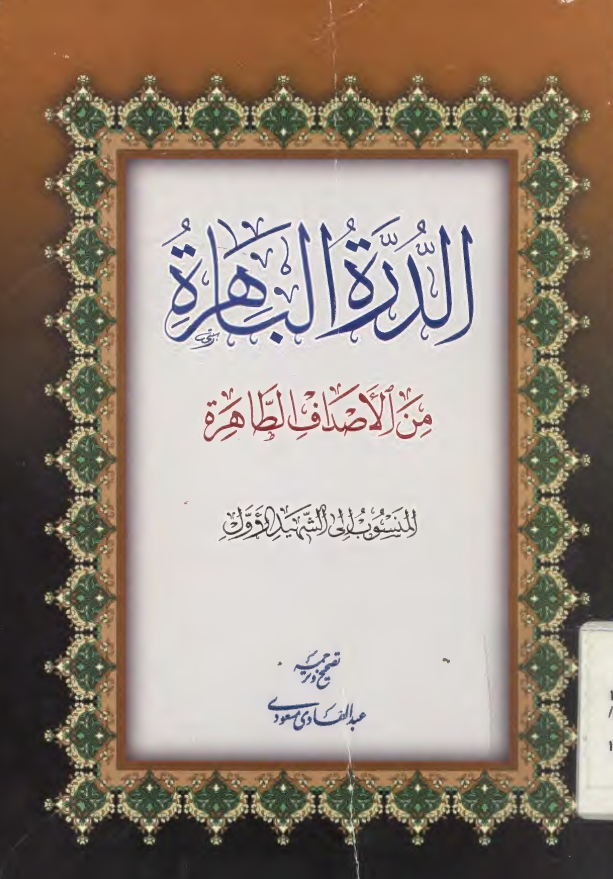 الدُّرَّةُ البَاهِرَةُ
مِنَ الأَصْدَافِ الطَّاهِرَةِ
المَنسُوبُ إلى الشَّهِيدِ الأَوَّلِ
تصحیح و ترجمه
عبدالهادی مسعودی